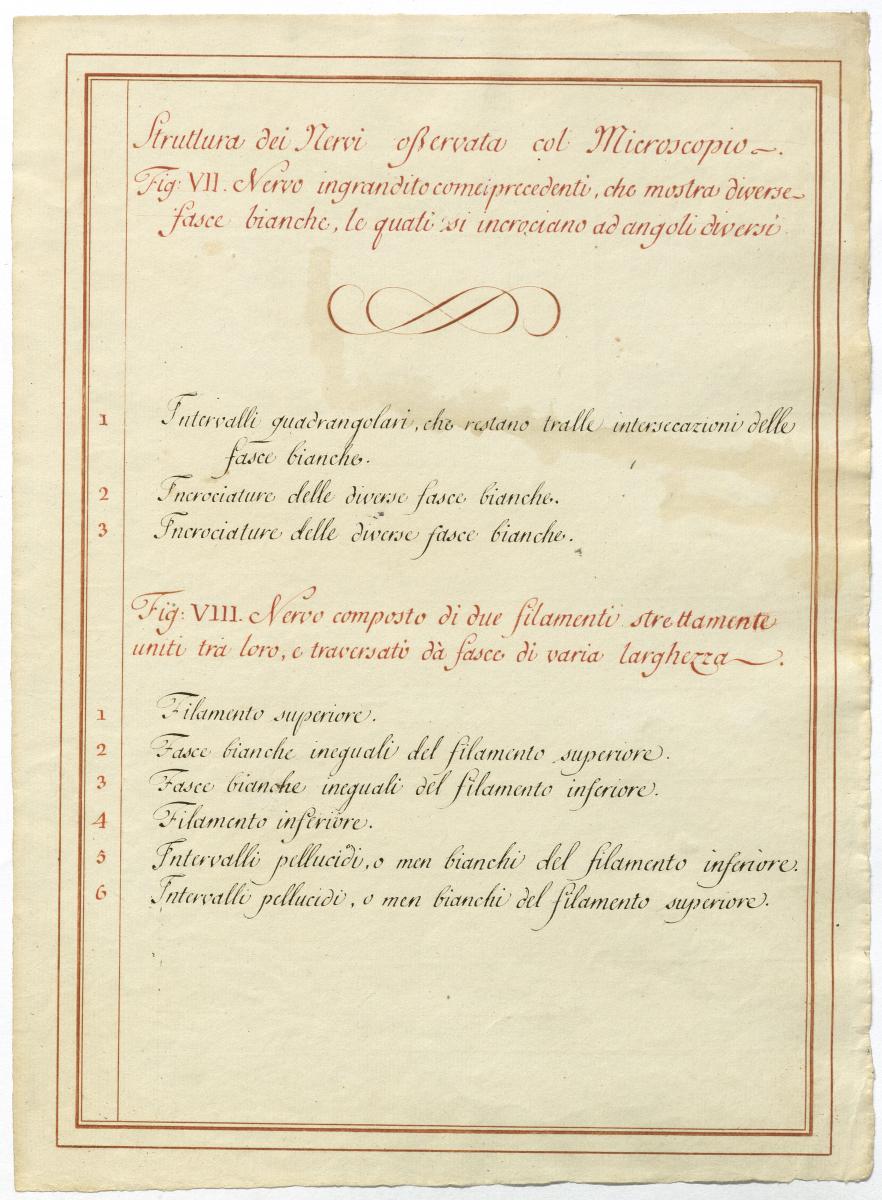 Struttura dei Nervi oſservata col Microscopio.
Fig: VII. Nervo ingrandito come i precedenti, che mostra diverse
fasce bianche, le quali si incrociano ad angoli diversi
1 Intervalli quadrangolari, che restano tralle intersecazioni delle
fasce bianche.
2 Incrociature delle diverse fasce bianche.
3 Incrociature delle diverse fasce bianche.
Fig: VIII. Nervo composto di due filamenti strettamente
uniti trà loro, e traversati dà fasce di varia larghezza.
1 Filamento superiore.
2 Fasce bianche ineguali del filamento superiore.
3 Fasce bianche ineguali del filamento inferiore.
4 Filamento inferiore.
5 Intervalli pellucidi, o men bianchi del filamento inferiore.
6 Intervalli pellucidi, o men bianchi del filamento superiore.